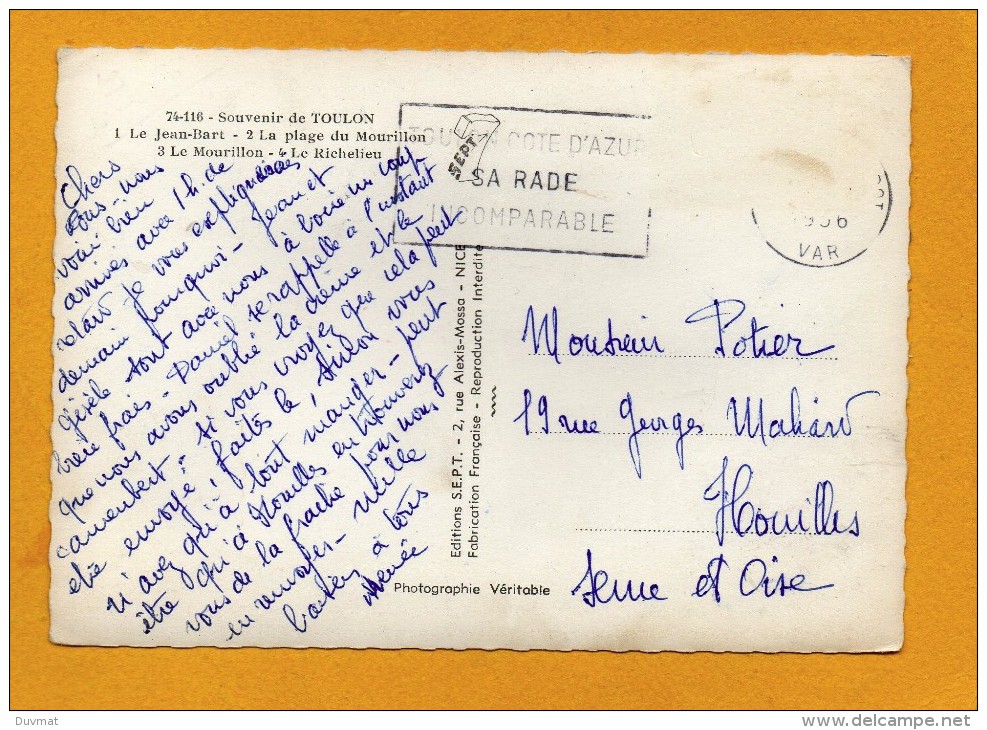 74-116 - Souvenir de TOULON
1 Le Jean-Bart - 2 La plage du Mourillon
3 Le Mourillon - 4 Le Richelieu
Chers
tous - nous
voici bien
arrivés avec 1 h. de
retard je vous expliquerai
demain pourquoi - Jean et
Gisèle sont avec nous à boire un coup
frais - Daniel se rappelle à l'instant
que nous avons oublié la crème et le
camembert - si vous voyez que cela peut
etre envoyé, faites le, sinon vous
n'avez qu'à tout manger - peut
être qu'à Houilles en trouverez
vous de la frache pour nous
en renvoyer - mille
baisers à tous
Renée
TOULON COTE D'AZUR
SA RADE
INCOMPARABLE
SEPT
1956
VAR
Editions S.E.P.T. - 2, rue Alexis-Mossa - NICE
Fabrication Française - Reproduction Interdite
Photographie Véritable
Monsieur Potier
19 rue Georges Mahard
Houilles
Seine et Oise
Duvmat
www.delcampe.net